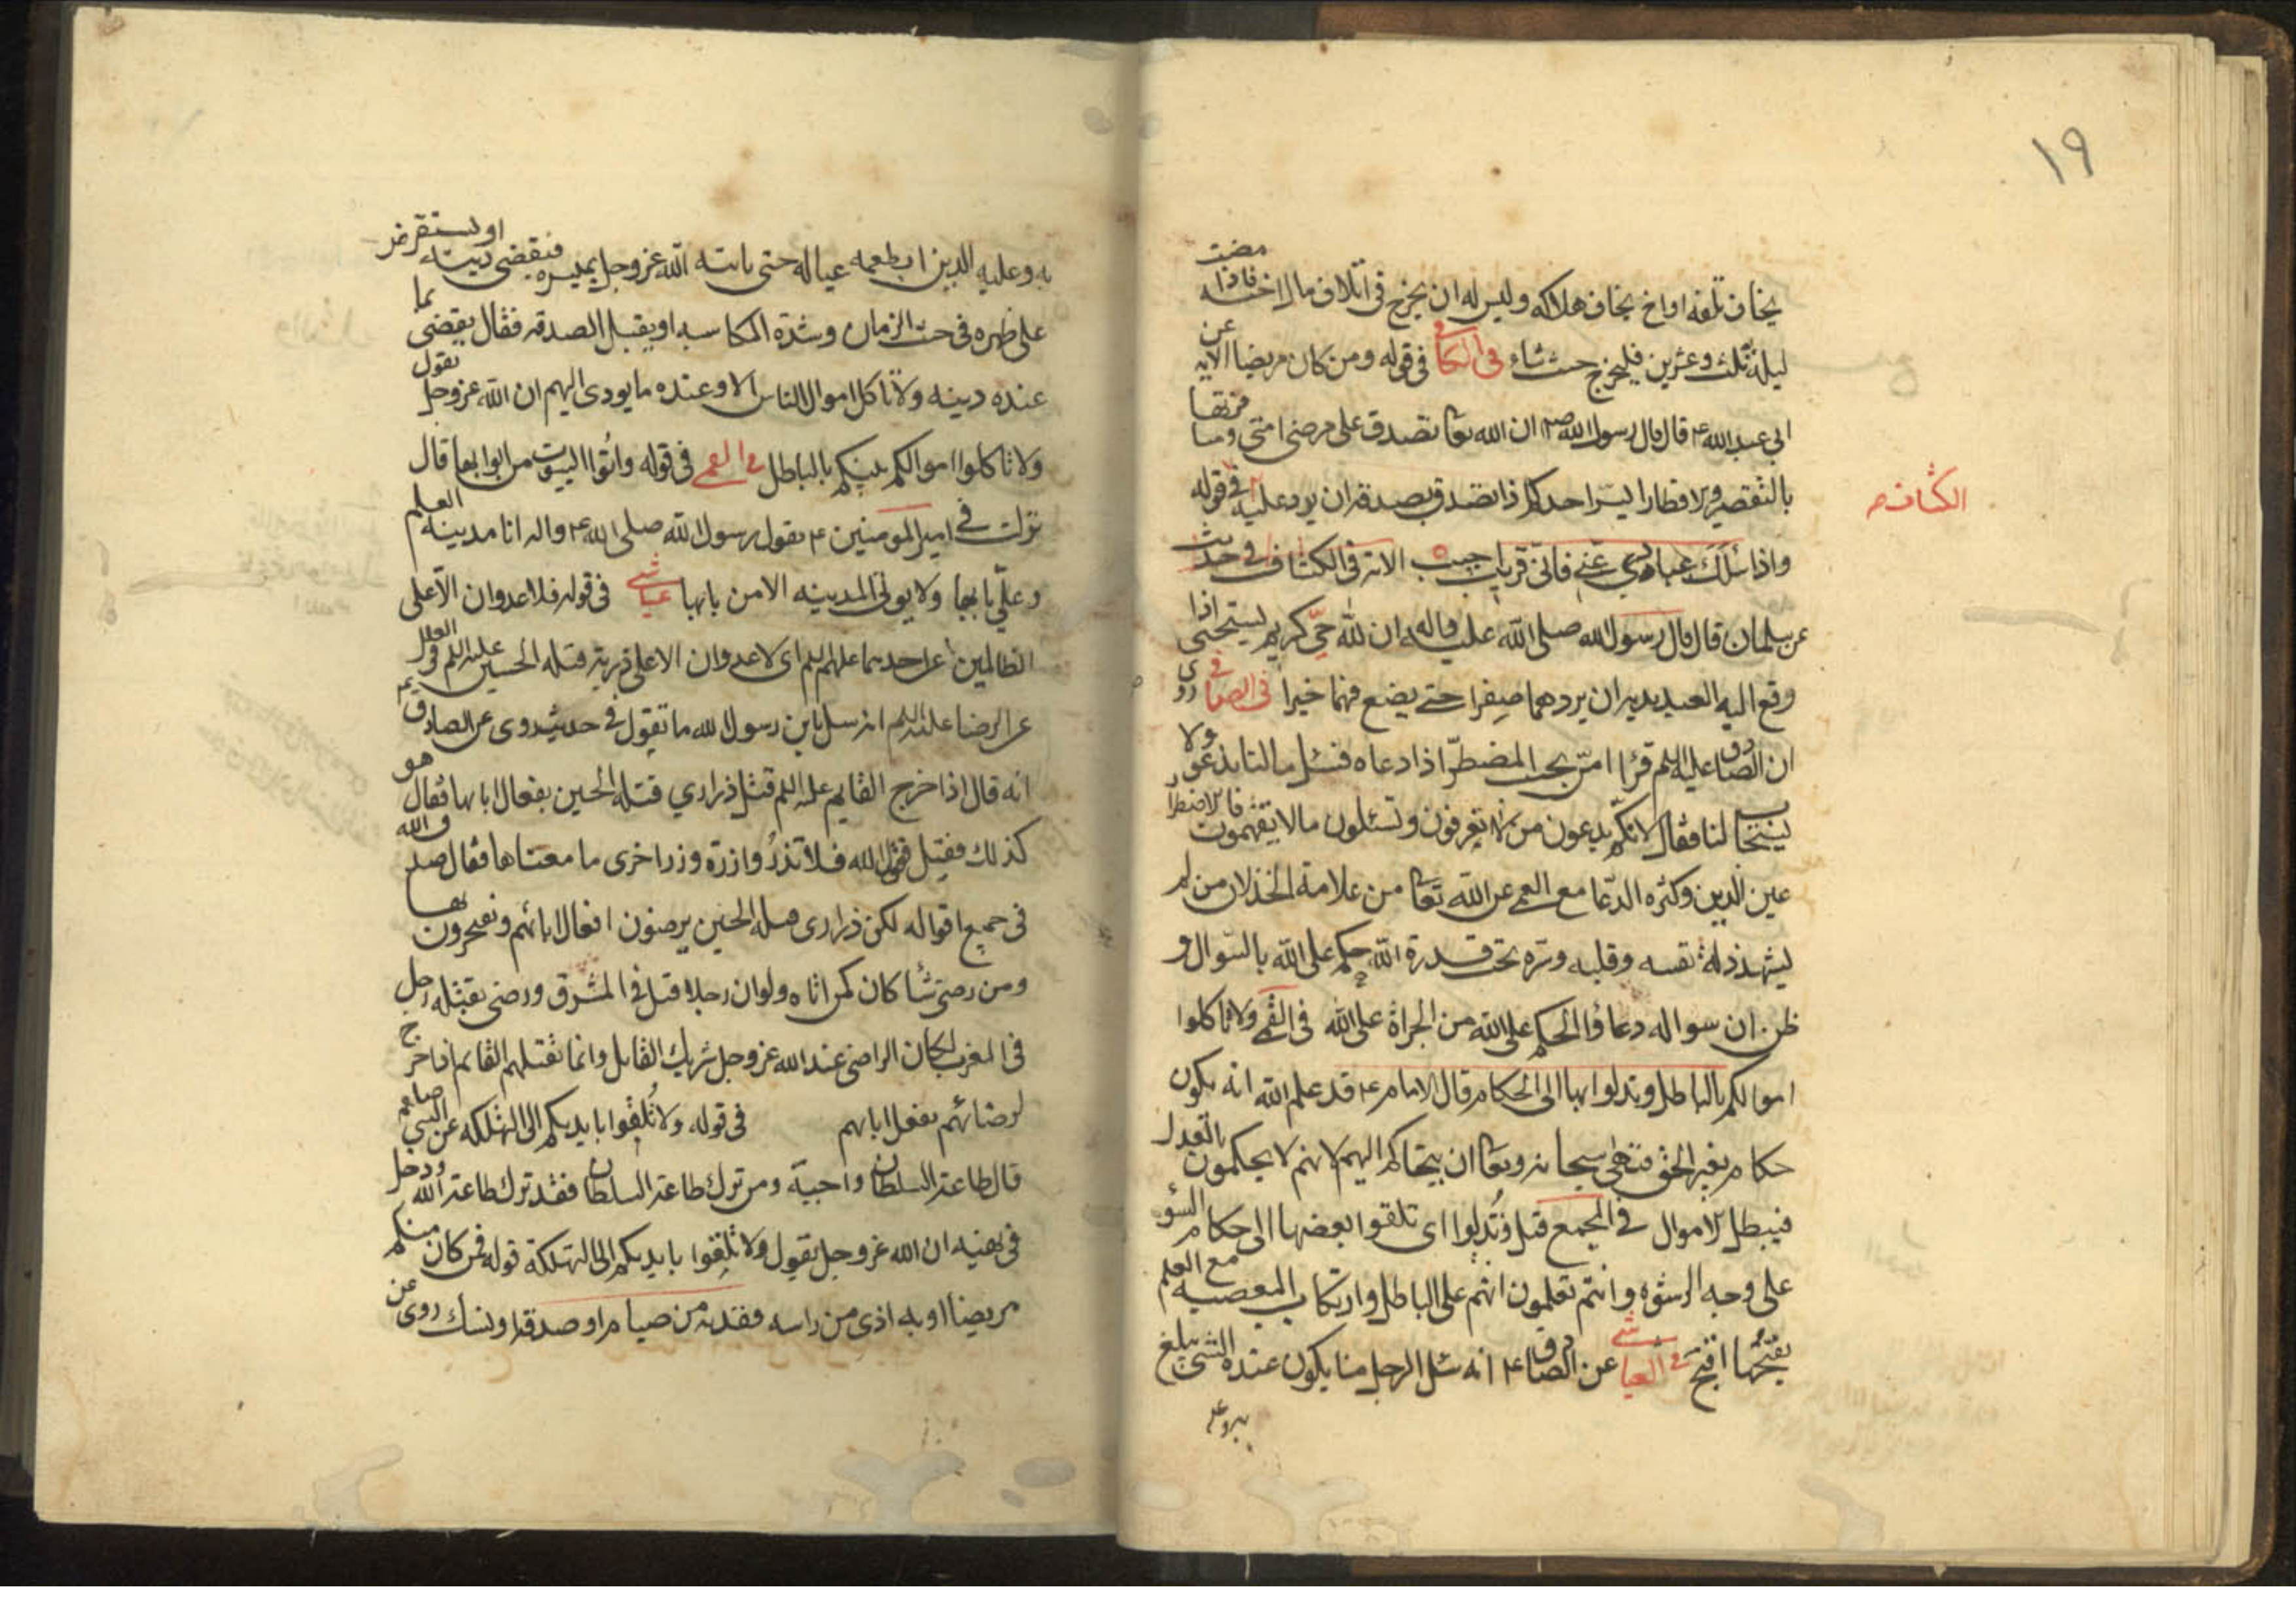 ١٩
يخاف تلفه او اخ يخاف هلاكه وليس له ان يخرج في اتلاف مال اخيه فاذا مضت
ليلة ثلث وعشرين فليخرج حيث شاء في الكافي في قوله ومن كان مريضا الايه عن
ابي عبد الله ع قال قال رسول الله ص ان الله تعا تصدق على مرضى امتي ومسافريها
بالتقصير والافطار ايسر احدكم اذا تصدق بصدقه ان يرد عليه في قوله
الكشاف
واذا سئلك عبادي عني فاني قريب اجيب الايه في الكشاف في حديث
عن سلمان قال قال رسول الله صلى الله عليه واله ان لله حي كريم يستحيي اذا
رفع اليه العبد يديه ان يردهما صفرا حتى يضع فيهما خيرا في الصافي روى
ان الصادق عليه السلم قرا امن يجيب المضطر اذا دعاه فسئل مالنا ندعو ولا
يستجاب لنا فقال لانكم تدعون من لا تعرفون وتسئلون مالا تفهمون فالاضطرار
عين الدين وكثره الدعا مع العمى عن الله تعا من علامة الخذلان من لم
يشهد ذلة نفسه وقلبه وسره تحت قدرة الله حكم على الله بالسوال و
ظن ان سواله دعا والحكم على الله من الجراة على الله في القمي ولا تاكلوا
اموالكم بالباطل وتدلوا بها الى الحكام قال الامام ع قد علم الله انه يكون
حكام بغير الحق فنهى سبحانه وتعا ان يتحاكم اليهم لانهم لا يحكمون بالعدل
فيبطل الاموال في المجمع قيل وتدلوا اي تلقوا بعضها الى حكام السوء
على وجه الرشوه وانتم تعلمون انهم على الباطل وارتكاب المعصيه مع العلم
بقبحها اقبح في العياشي عن الصادق ع انه سئل الرجل منا يكون عنده الشي يبلغ
به وعليه الدين ايطعمه عياله حتى ياتيه الله عز وجل بميسره فيقضي دينه او يستقرض
على ظهره في خبث الزمان وشدة المكاسبه او يقبل الصدقه فقال يقضي بما
عنده دينه ولا تاكل اموال الناس الا وعنده ما يودى اليهم ان الله عز وجل يقول
ولا تاكلوا اموالكم بينكم بالباطل في القمي في قوله واتوا البيوت من ابوابها قال
نزلت في امير المومنين ع بقول رسول الله صلى الله ع واله انا مدينة العلم
وعلي بابها ولا يوتى المدينه الا من بابها عياشي في قوله فلا عدوان الا على
الظالمين عن احدهما عليهم السلم اي لا عدوان الا على ذرية قتله الحسين عليه السلم وفي العلل
عن الرضا عليه السلم انه سئل يابن رسول الله ما تقول في حديث روى عن الصادق ع
انه قال اذا خرج القايم عليه السلم قتل ذراري قتله الحسين بفعال ابايها فقال هو
كذلك فقيل فقول الله فلا تزر وازرة وزر اخرى ما معناها فقال صدق الله
في جميع اقواله لكن ذراري قتله الحسين يرضون افعال ابائهم ويفتخرون بها
ومن رضي شيئا كان كمن اتاه ولو ان رجلا قتل في المشرق ورضى بقتله رجل
في المغرب لكان الراضي عند الله عز وجل شريك القاتل وانما يقتلهم القايم اذا خرج
لرضائهم بفعل ابايهم في قوله ولا تلقوا بايديكم الى التهلكه عن النبي صلعم
قال طاعة السلطان واجبة ومن ترك طاعة السلطان فقد ترك طاعة الله ودخل
في نهيه ان الله عز وجل يقول ولا تلقوا بايديكم الى التهلكة قوله فمن كان منكم
مريضا او به اذى من راسه ففديه من صيام او صدقه او نسك روى عن